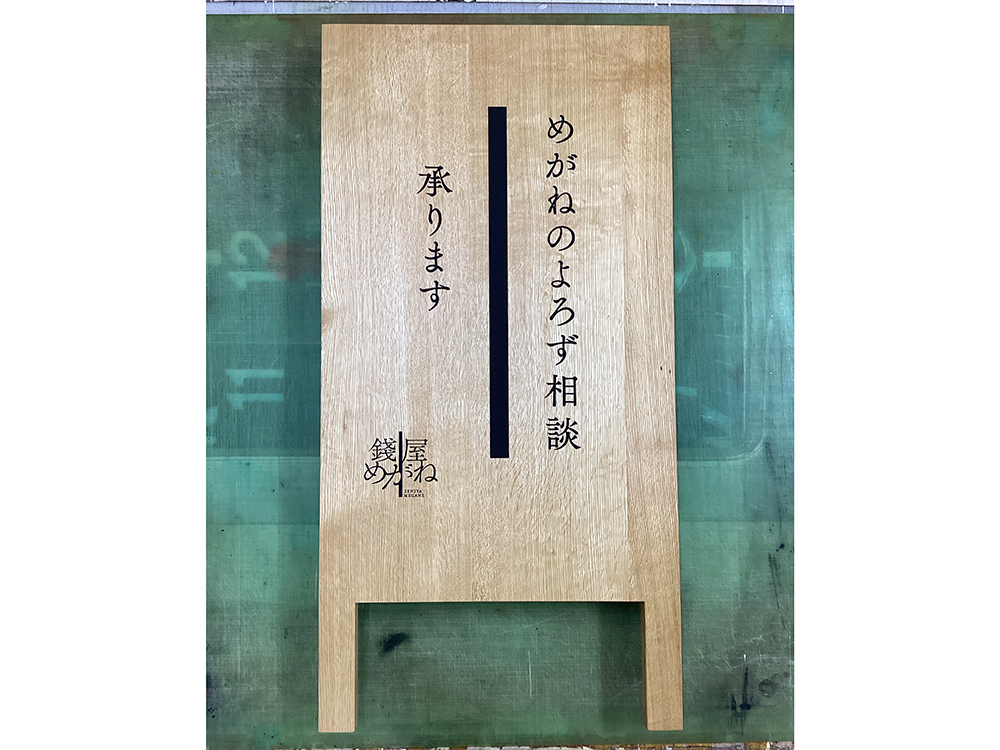 めがねのよろず相談
承ります
錢屋
めがね
ZENIYA
MEGANE
12
11